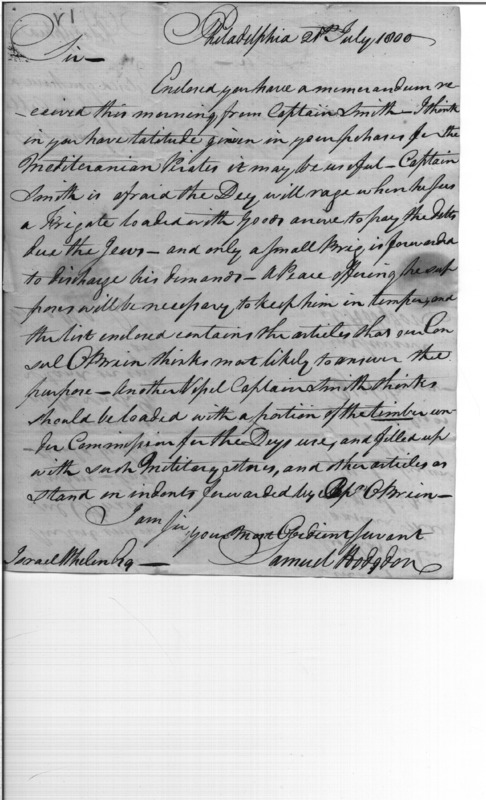 Philadelphia 21st July 1800
Sir —
Enclosed you have a memorandum re-
-ceived this morning from Captain Smith — I think
in you have latitude given in your purchases for the
Mediteranian Pirates it may be useful — Captain
Smith is afraid the Dey will rage when he sees
a Frigate loaded with Goods arrive to pay the debts
due the Jews — and only a small Brig is forwarded
to discharge his demands — A Peace offering he sup
poses will be necessary to keep him in temper, and
the list enclosed contains the articles that our Con
sul OBrien thinks most likely to answer the
purpose — Another Vessel Captain Smith thinks
should be loaded with a portion of the timber un-
der Commission for the Deys use, and filled up
with such Military stores, and other articles as
stand on indents forwarded by OBrien —
I am Sir,
your Most Obedient Servant
Israel Whelen Esq — Samuel Hodgdon